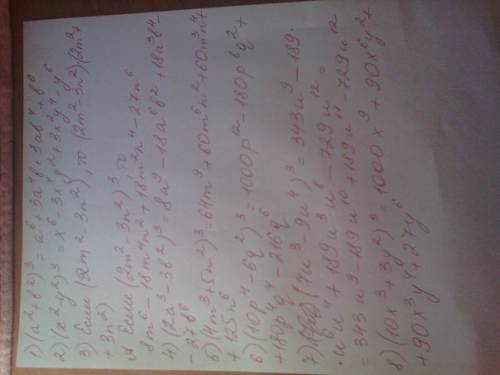 1) (a²+b²)³ = a⁶+3a⁴b+3ab⁴+b⁶
2) (x²-y²)³ = x⁶-3x⁴y²+3x²y⁴-y⁶
3) Если (2m²-3n²), то (2m²-3n²)(2m²+
+3n²)
А Если (2m²-3n²)³, то
8m⁶-18m⁴n²+18m²n⁴-27n⁶
4) (2a³-3b²)³ = 8a⁹-18a⁶b²+18a³b⁴-
-27b⁶
5) (4m³+5n²)³ = 64m⁹+60m⁶n²+60m³n⁴+
+125n⁶
6) (10p⁴-6q²)³ = 1000p¹²-180p⁶q²+
+180p⁴q⁴-216q⁶
7) (7u³-9u⁴)³ = 343u⁹-189·
·u⁶u⁴+189u³u⁸-729u¹² =
= 343u⁹-189u¹⁰+189u¹¹-729u¹²
8) (10x³+3y²)³ = 1000x⁹+90x⁶y²+
+90x³y⁴+27y⁶